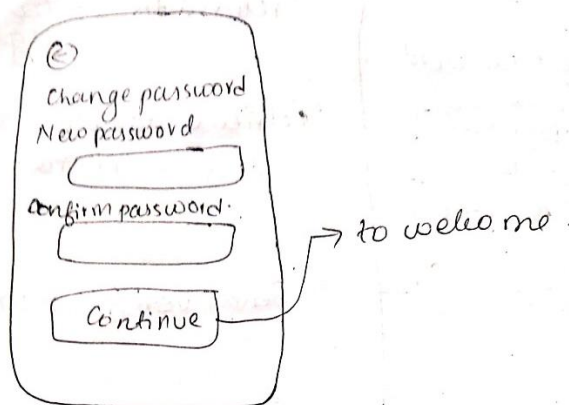 Change password
New password
Confirm password.
Continue
to welcome